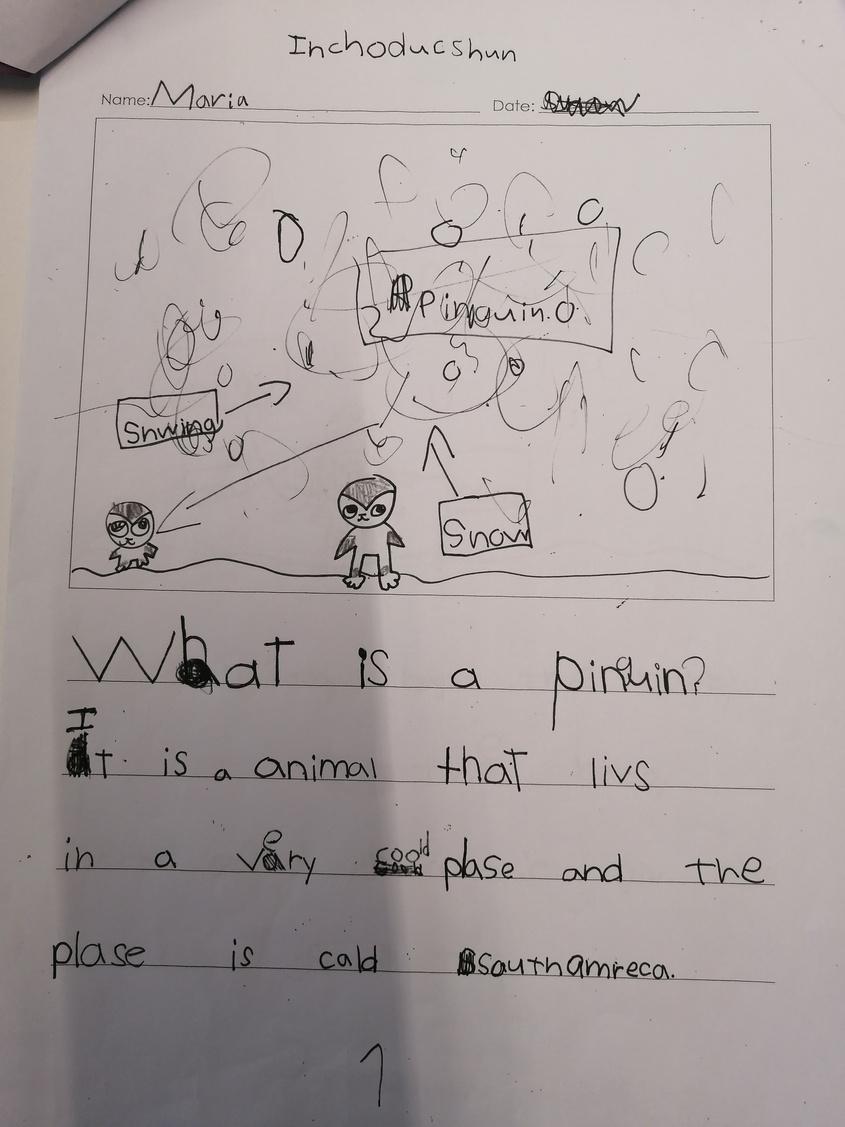 Inchoducshun
Name: Maria Date:
Pinguin.
Snwing
Snow
What is a pinguin?
It is a animal that livs
in a very coold plase and the
plase is cald southamreca.
1